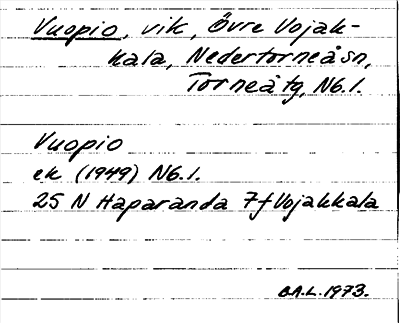 Vuopio, vik, Övre Vojak-
kala, Nedertorneå sn,
Torneå tg, N6.1.
Vuopio
ek (1949) N6.1.
25 N Haparanda 7f Vojakkala
B.A.L. 1973.